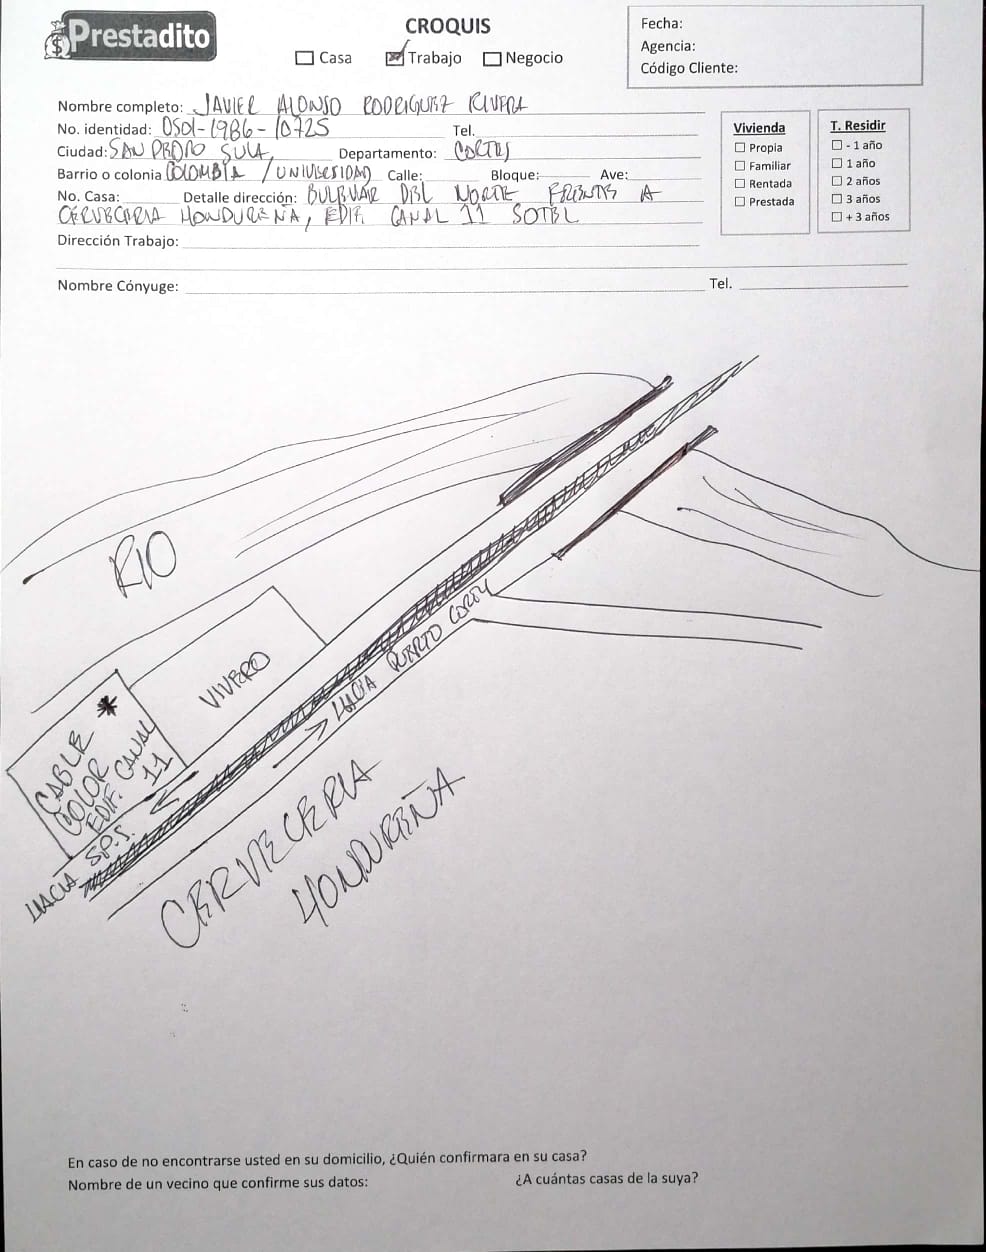 Prestadito
CROQUIS
Casa Trabajo Negocio
Fecha:
Agencia:
Código Cliente:
Nombre completo: JAVIER ALONSO RODRIGUEZ RIVERA
No. identidad: 0501-1986-10725 Tel.
Ciudad: SAN PEDRO SULA, Departamento: CORTES
Barrio o colonia COLOMBIA / UNIVERSIDAD Calle: Bloque: Ave:
No. Casa: Detalle dirección: BULEVAR DEL NORTE FRENTE A
CERVECERIA HONDUREÑA, EDIF. CANAL 11 SOTEL
Dirección Trabajo:
Nombre Cónyuge: Tel.
Vivienda
Propia
Familiar
Rentada
Prestada
T. Residir
- 1 año
1 año
2 años
3 años
+ 3 años
RIO
VIVERO
CABLE
COLOR
EDIF. CANAL
11
HACIA PUERTO CORTES
HACIA S.P.S.
CERVECERIA
HONDUREÑA
En caso de no encontrarse usted en su domicilio, ¿Quién confirmara en su casa?
Nombre de un vecino que confirme sus datos: ¿A cuántas casas de la suya?